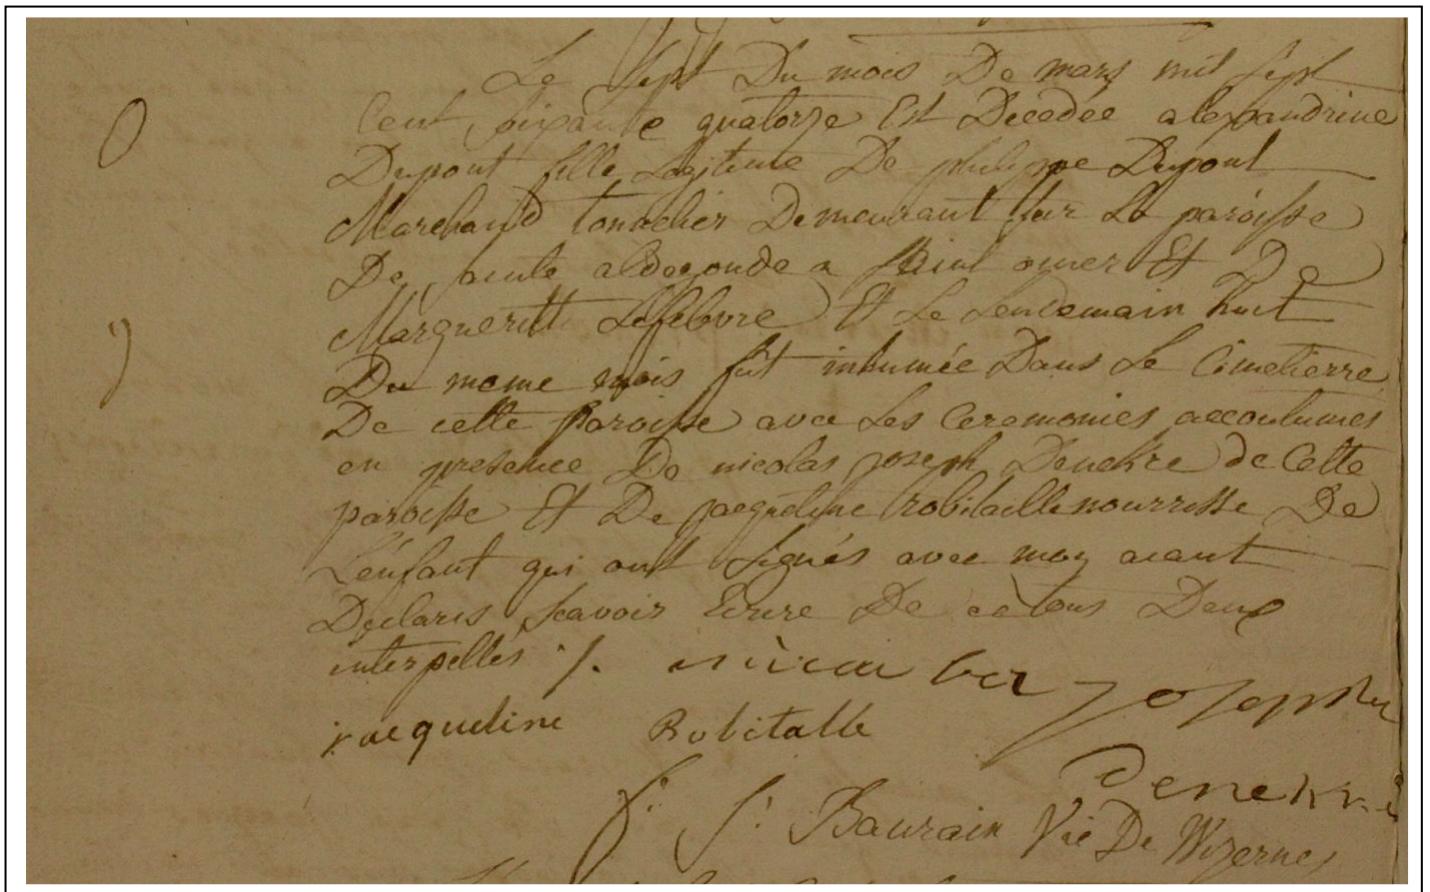 Le Sept Du mois De mars mil Sept
Cent soixante quatorze Est Decedée alexandrine
Dupont fille Legitime De philippe Dupont
Marchand tonnelier Demeurant sur La paroisse
De sainte aldegonde a Saint omer Et De
Margueritte Lefebvre Et Le Lendemain huit
Du meme mois fut inhumée Dans Le Cimetierre
De cette Paroisse avec Les Ceremonies accoutumes
en presence De nicolas joseph Denekre de Cette
paroisse Et De jacqueline robitaille nourresse De
L'enfant qui ont signés avec moy aiant
Declarés Scavoir Ecrire De ce tous Deux
interpellés
joseph
jacqueline Robitalle
Denekre
f. J. Baurain Vic De Wizernes